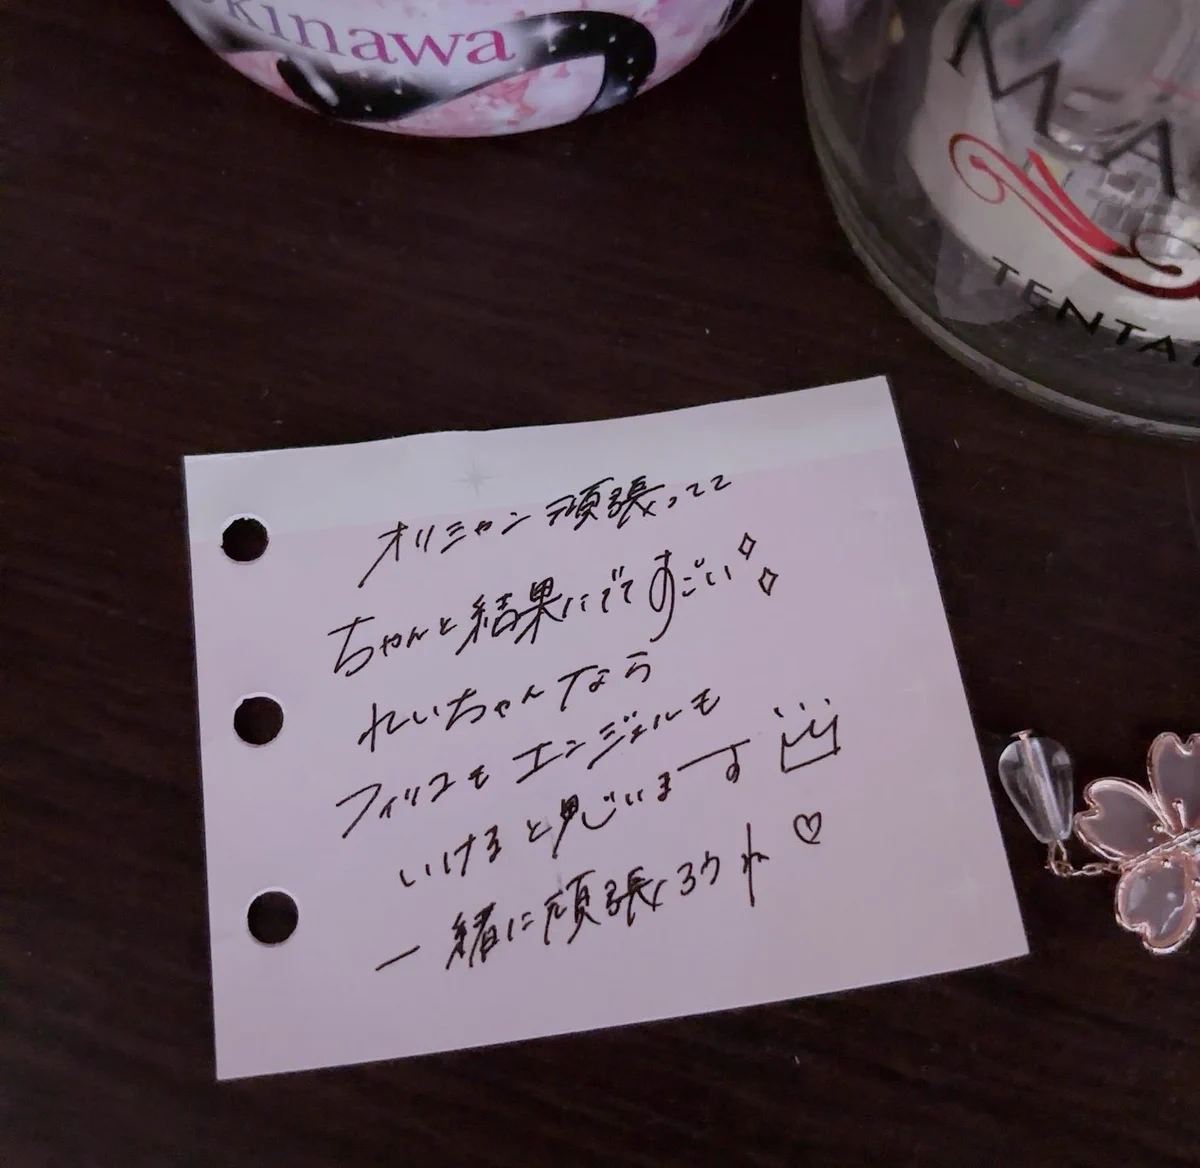 kinawa
MA
TENTA
オリシャン頑張ってて
ちゃんと結果にでてすごい
れいちゃんなら
フィリコもエンジェルも
いけると思います
一緒に頑張ろうね♡